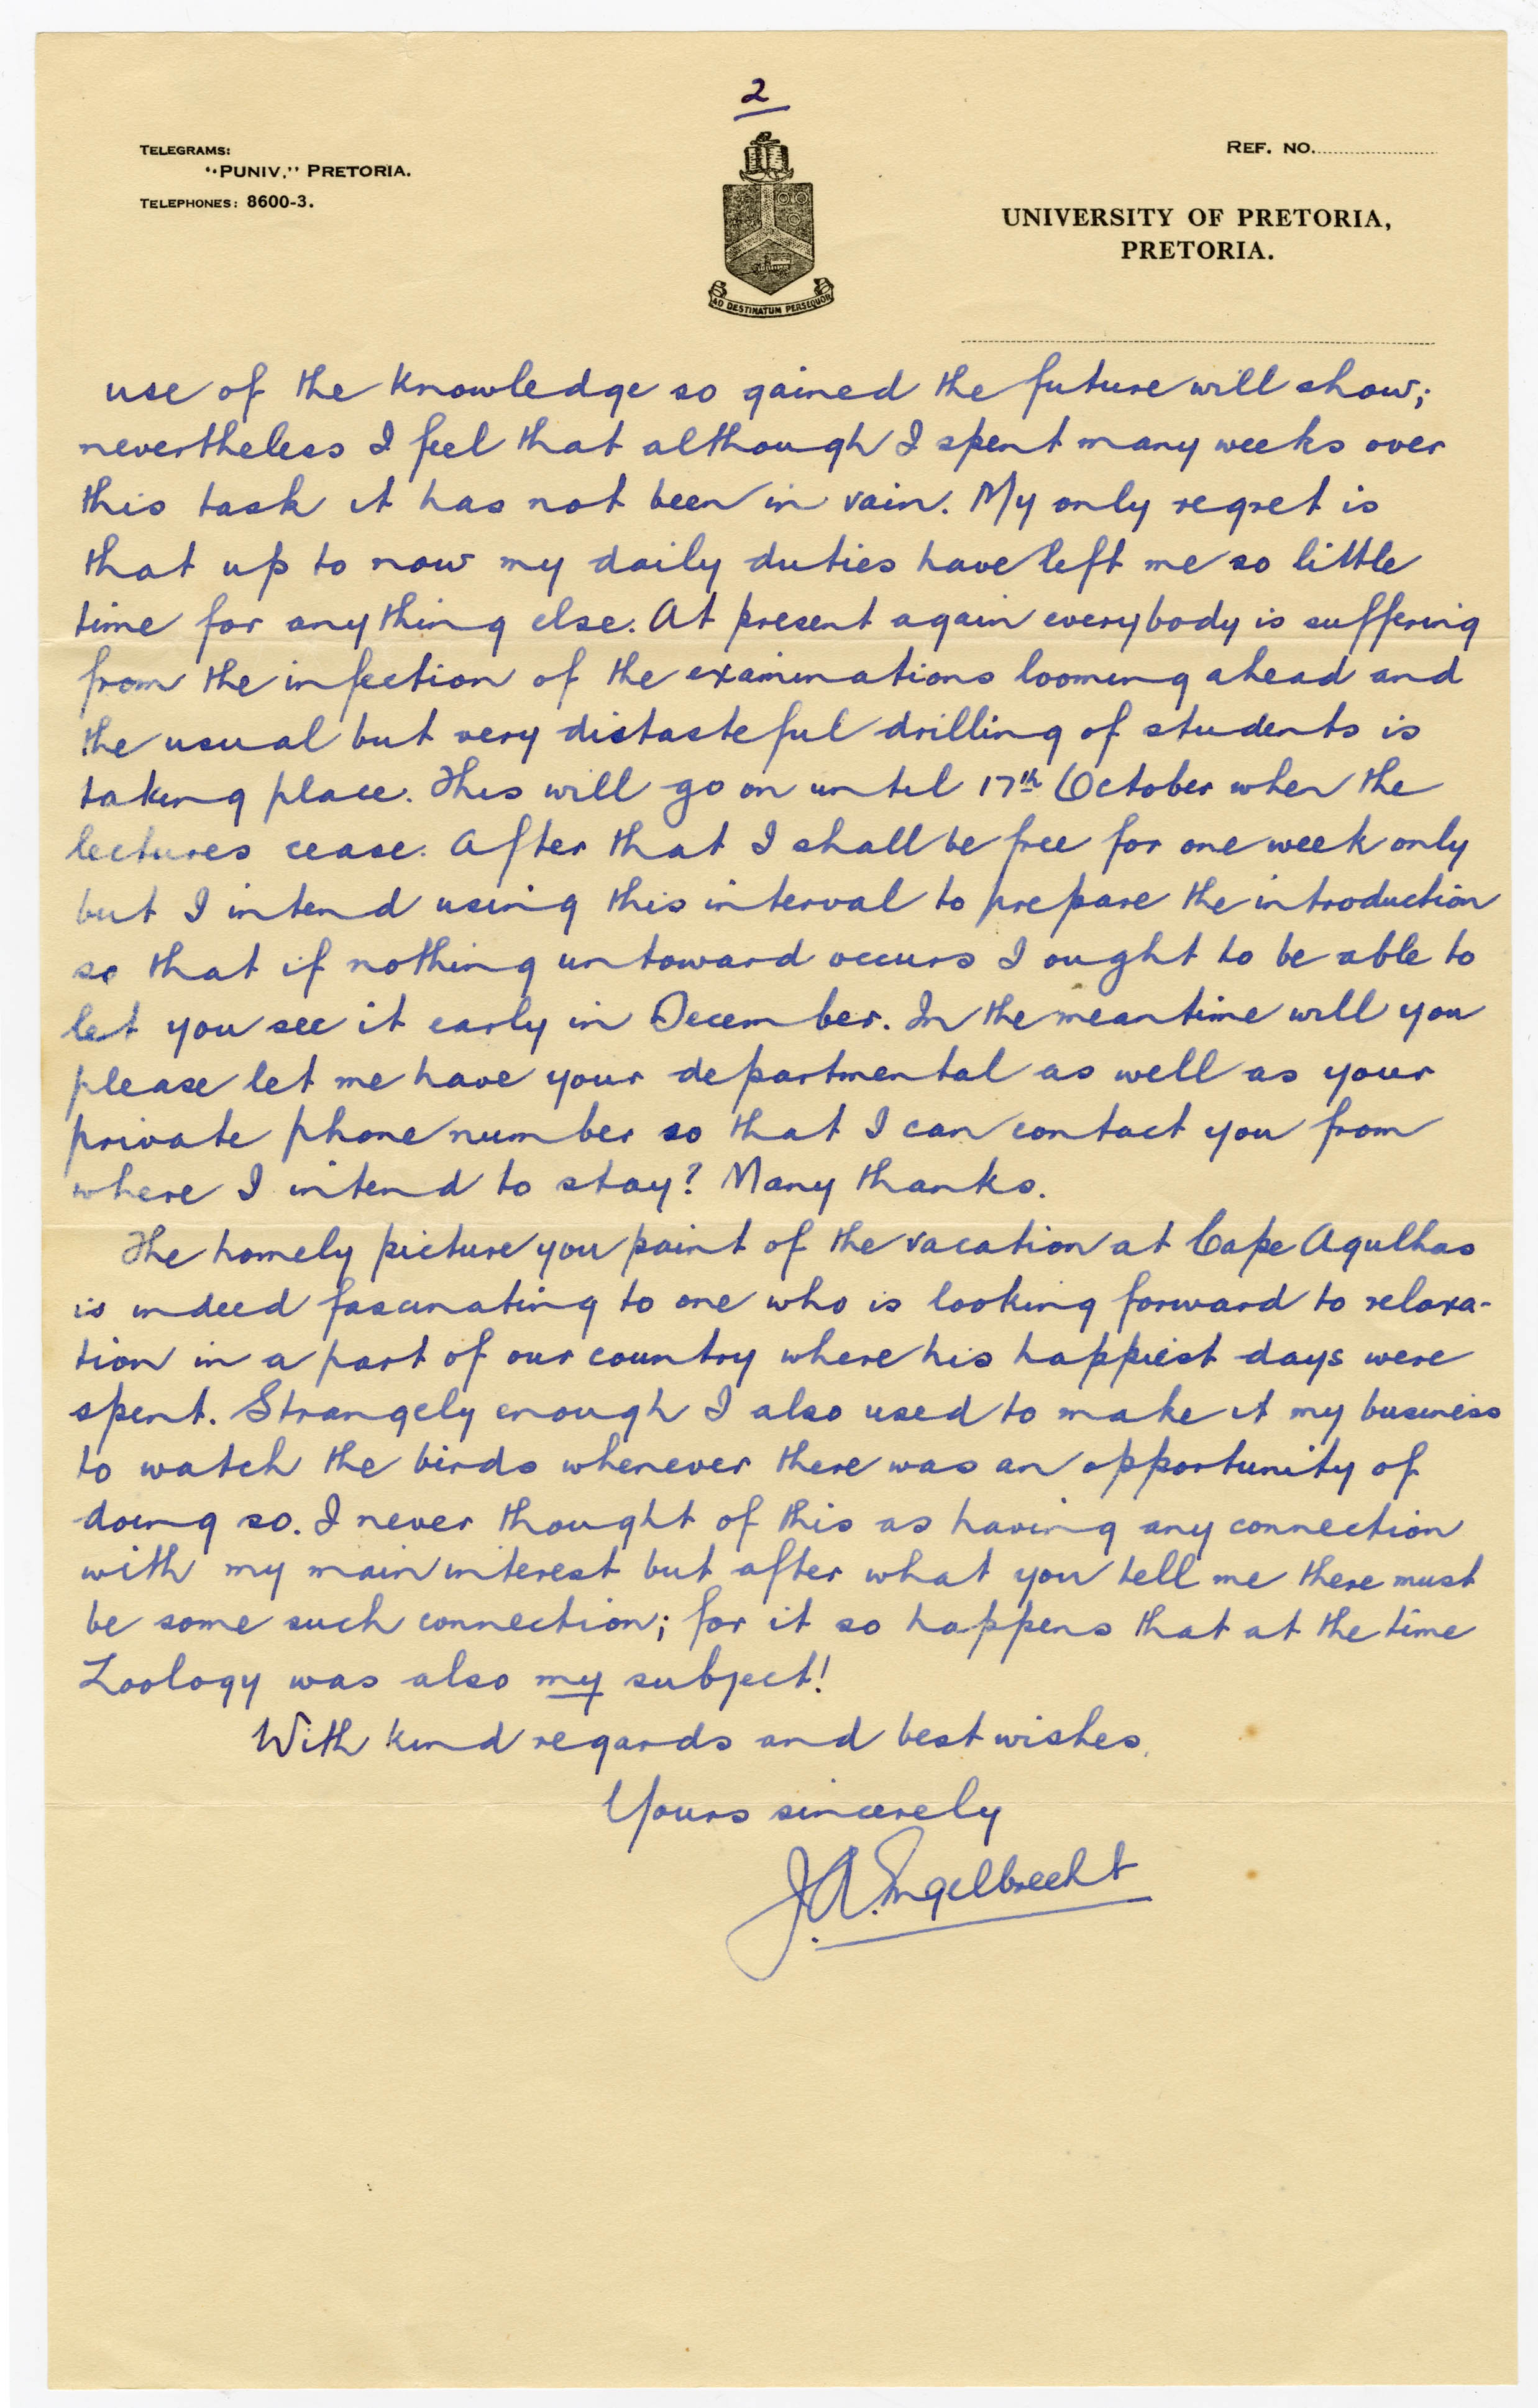 2
TELEGRAMS:
"PUNIV," PRETORIA.
TELEPHONES: 8600-3.
REF. NO.
UNIVERSITY OF PRETORIA,
PRETORIA.
AD DESTINATUM PERSEQUOR
use of the knowledge so gained the future will show;
nevertheless I feel that although I spent many weeks over
this task it has not been in vain. My only regret is
that up to now my daily duties have left me so little
time for anything else. At present again everybody is suffering
from the infection of the examinations looming ahead and
the usual but very distasteful drilling of students is
taking place. This will go on until 17th October when the
lectures cease. After that I shall be free for one week only
but I intend using this interval to prepare the introduction
so that if nothing untoward occurs I ought to be able to
let you see it early in December. In the meantime will you
please let me have your departmental as well as your
private phone number so that I can contact you from
where I intend to stay? Many thanks.
The homely picture you paint of the vacation at Cape Agulhas
is indeed fascinating to one who is looking forward to relaxa-
tion in a part of our country where his happiest days were
spent. Strangely enough I also used to make it my business
to watch the birds whenever there was an opportunity of
doing so. I never thought of this as having any connection
with my main interest but after what you tell me there must
be some such connection; for it so happens that at the time
Zoology was also my subject!
With kind regards and best wishes,
Yours sincerely
J.A. Engelbrecht